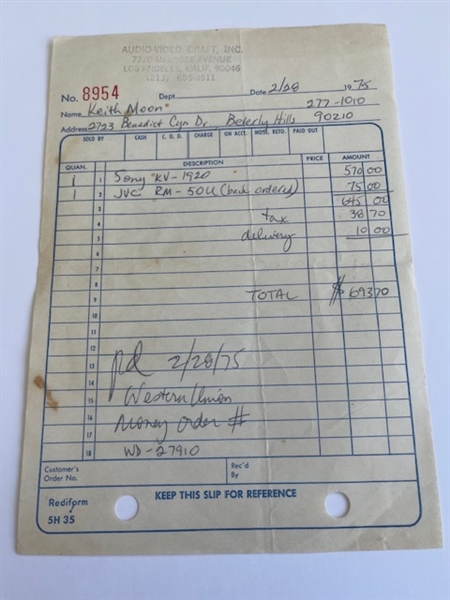 AUDIO-VIDEO CRAFT, INC.
AVENUE
LOS ANGELES, CALIF. 90046
(213) 655-3511
No. 8954 Dept. Date 2/28 1975
Name Keith Moon 277-1010
Address 2723 Benedict Cyn Dr Beverly Hills 90210
SOLD BY CASH C. O. D. CHARGE ON ACCT. MDSE. RETD. PAID OUT
QUAN. DESCRIPTION PRICE AMOUNT
1 1 Sony KV-1920 570 00
1 2 JVC RM-50U (back ordered) 75 00
3 645 00
4 tax 38 70
5 delivery 10 00
6
7
8
9 TOTAL $ 693 70
10
11
12
13 pd 2/28/75
14
15 Western Union
16 Money order #
17
18 WD-27910
Customer's Order No. Rec'd By
KEEP THIS SLIP FOR REFERENCE
Rediform
5H 35